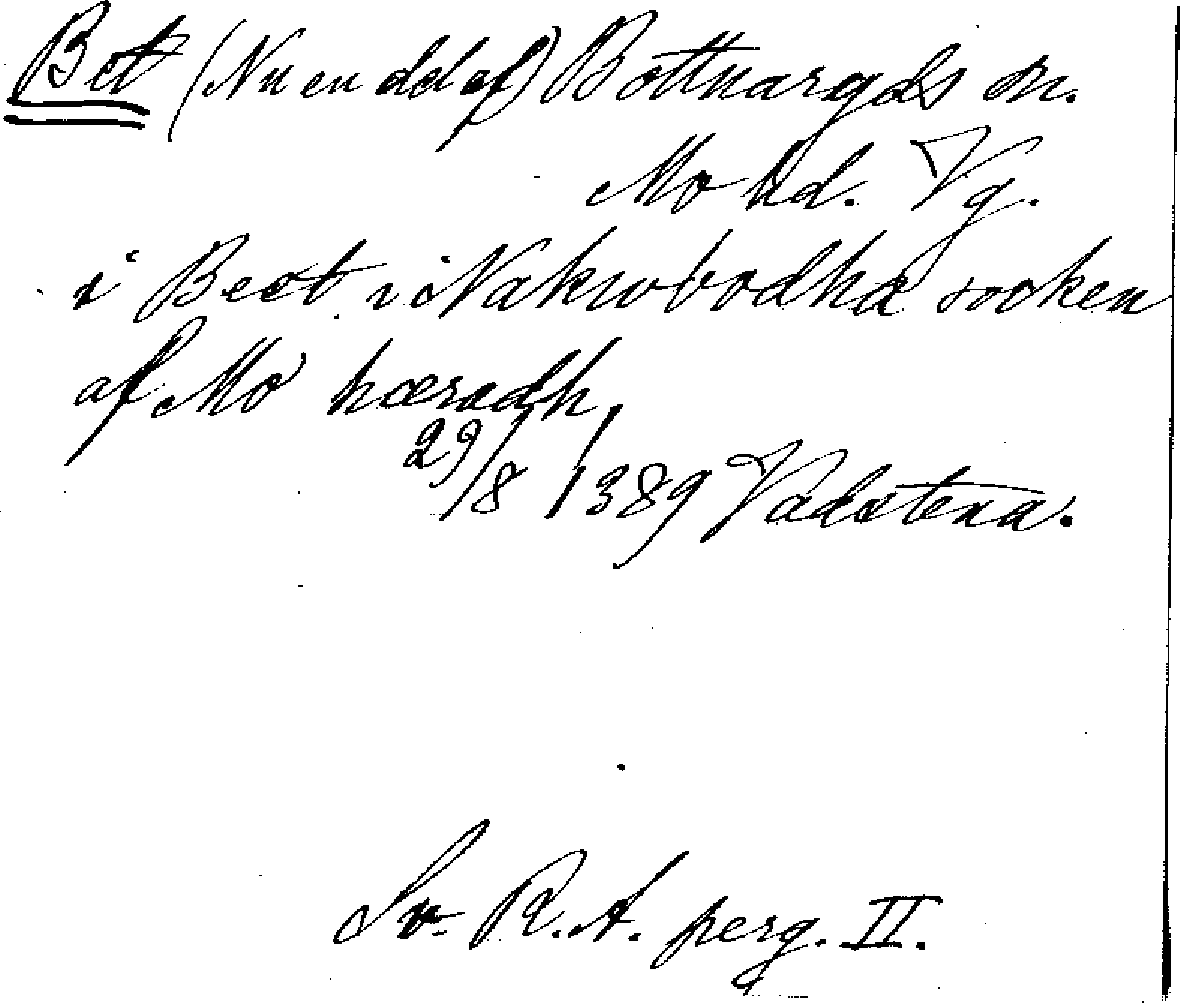 Bet (Nu en del af) Bottnaryds sn.
Mo hd. Vg.
i Beet i Nakwbodha soken
af Mo hæradh,
29/8 1389 Vadstena.
Sv. R. A. perg. II.